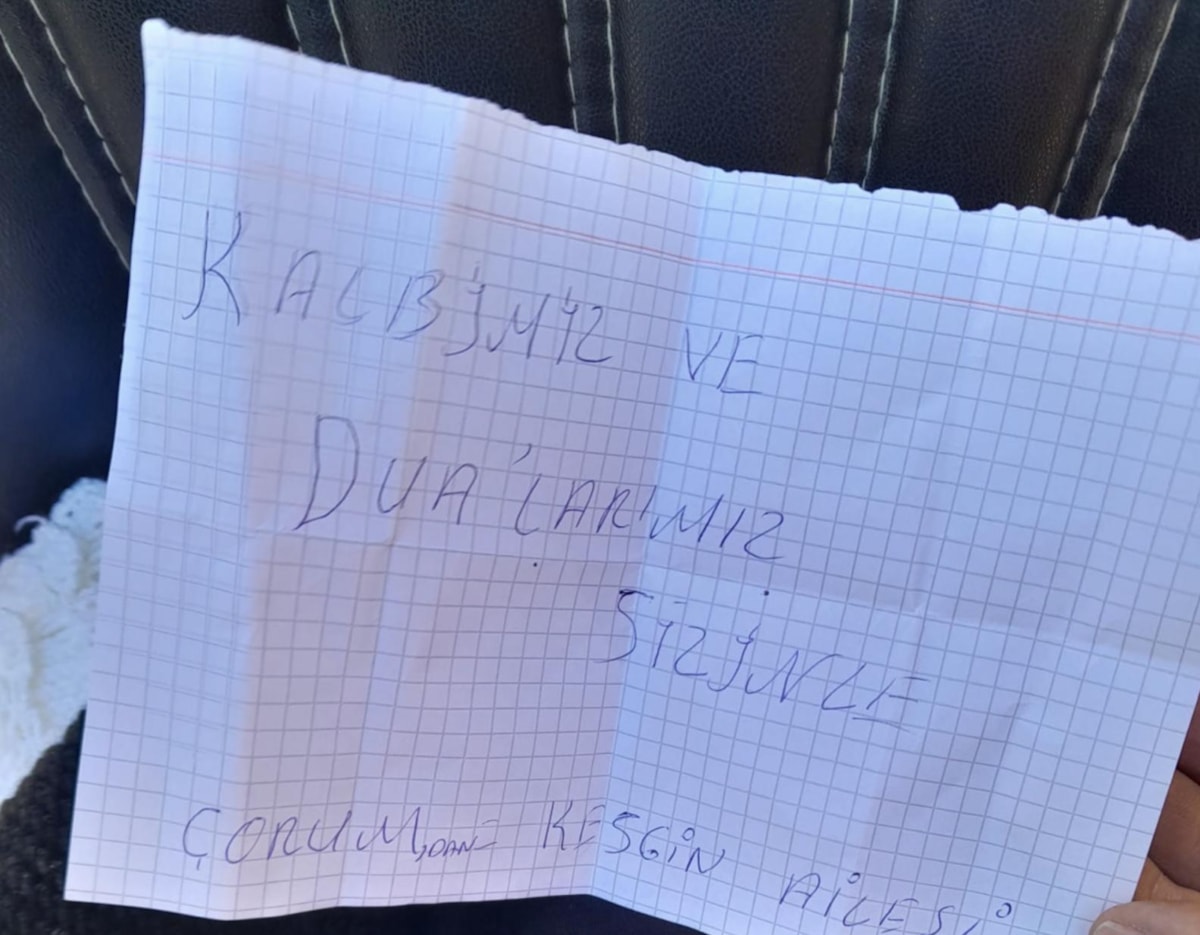 KALBİMİZ VE
DUA'LARIMIZ
SİZİNLE
ÇORUM'DAN= KESGİN AİLESİ